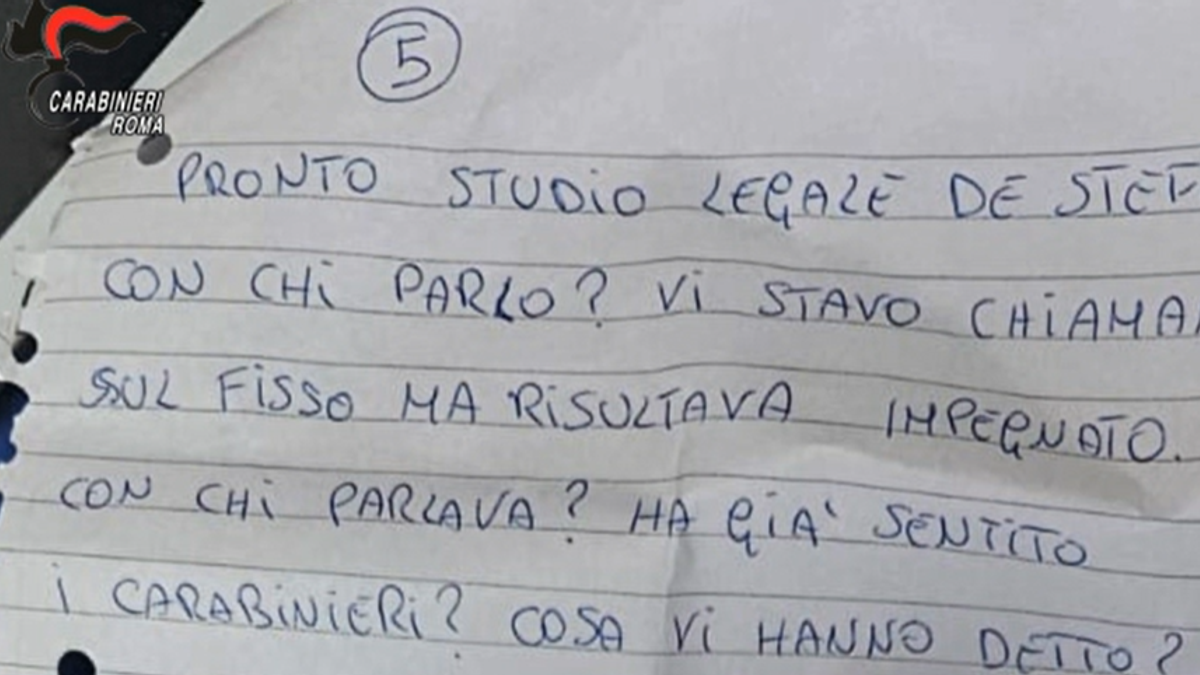 CARABINIERI
ROMA
5
PRONTO STUDIO LEGALE DE
CON CHI PARLO? VI STAVO
SUL FISSO MA RISULTAVA IMPEGNATO.
CON CHI PARLAVA? HA GIA' SENTITO
I CARABINIERI? COSA VI HANNO DETTO?